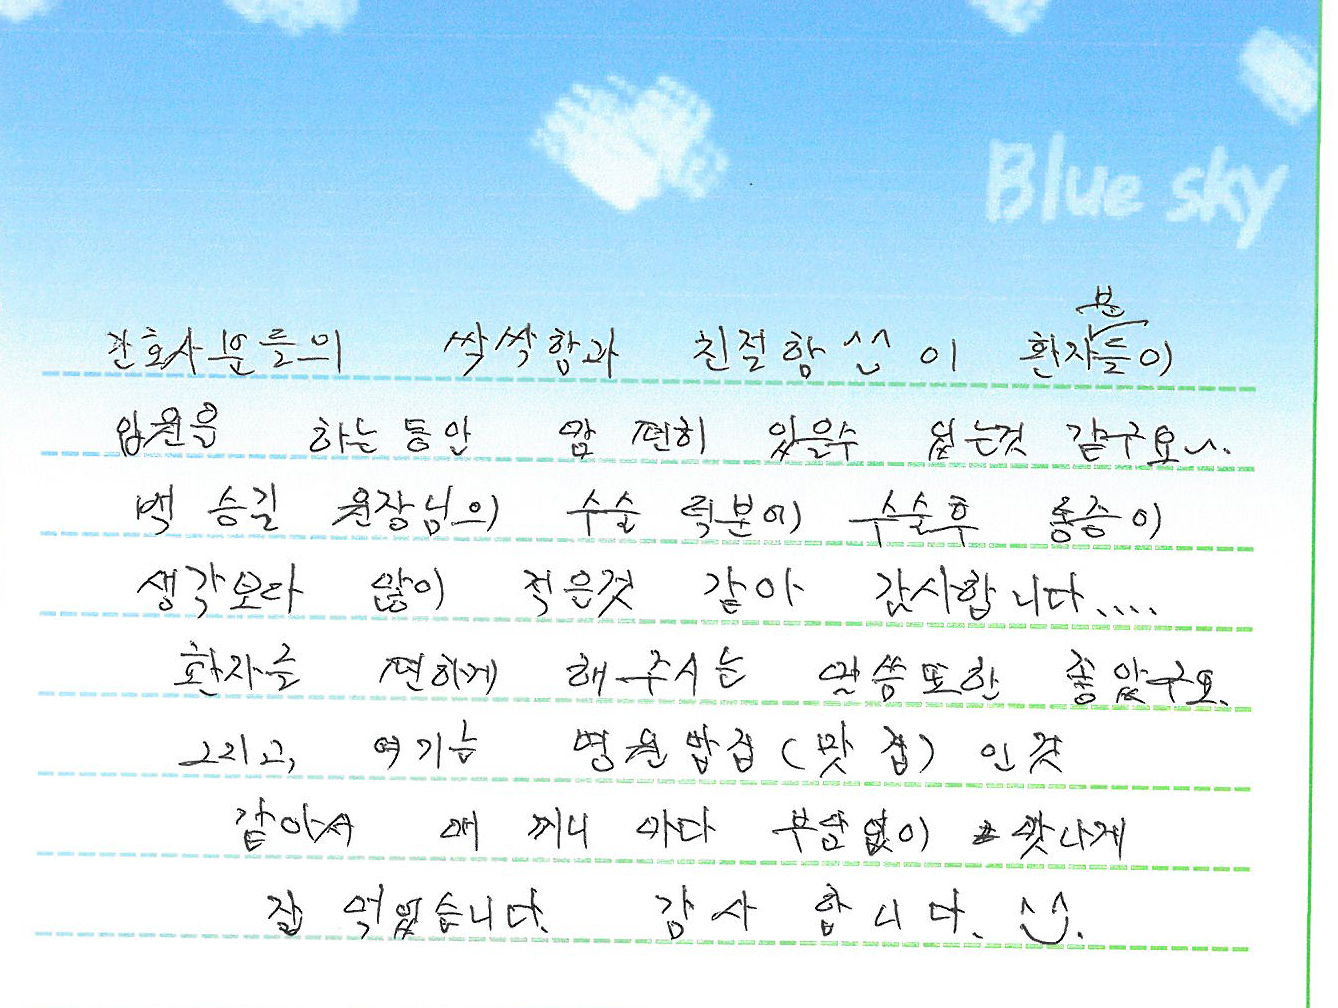 Blue sky
간호사분들의 싹싹함과 친절함^^이 환자분들이
입원을 하는동안 맘 편히 있을수 있는것 같구요^^.
백승길 원장님의 수술 덕분에 수술후 통증이
생각보다 많이 적은것 같아 감사합니다....
환자를 편하게 해 주시는 말씀또한 좋았구요.
그리고, 여기는 병원밥집(맛집)인것
같아서 매 끼니 마다 부담없이 맛나게
잘 먹었습니다. 감사 합니다. ^^.